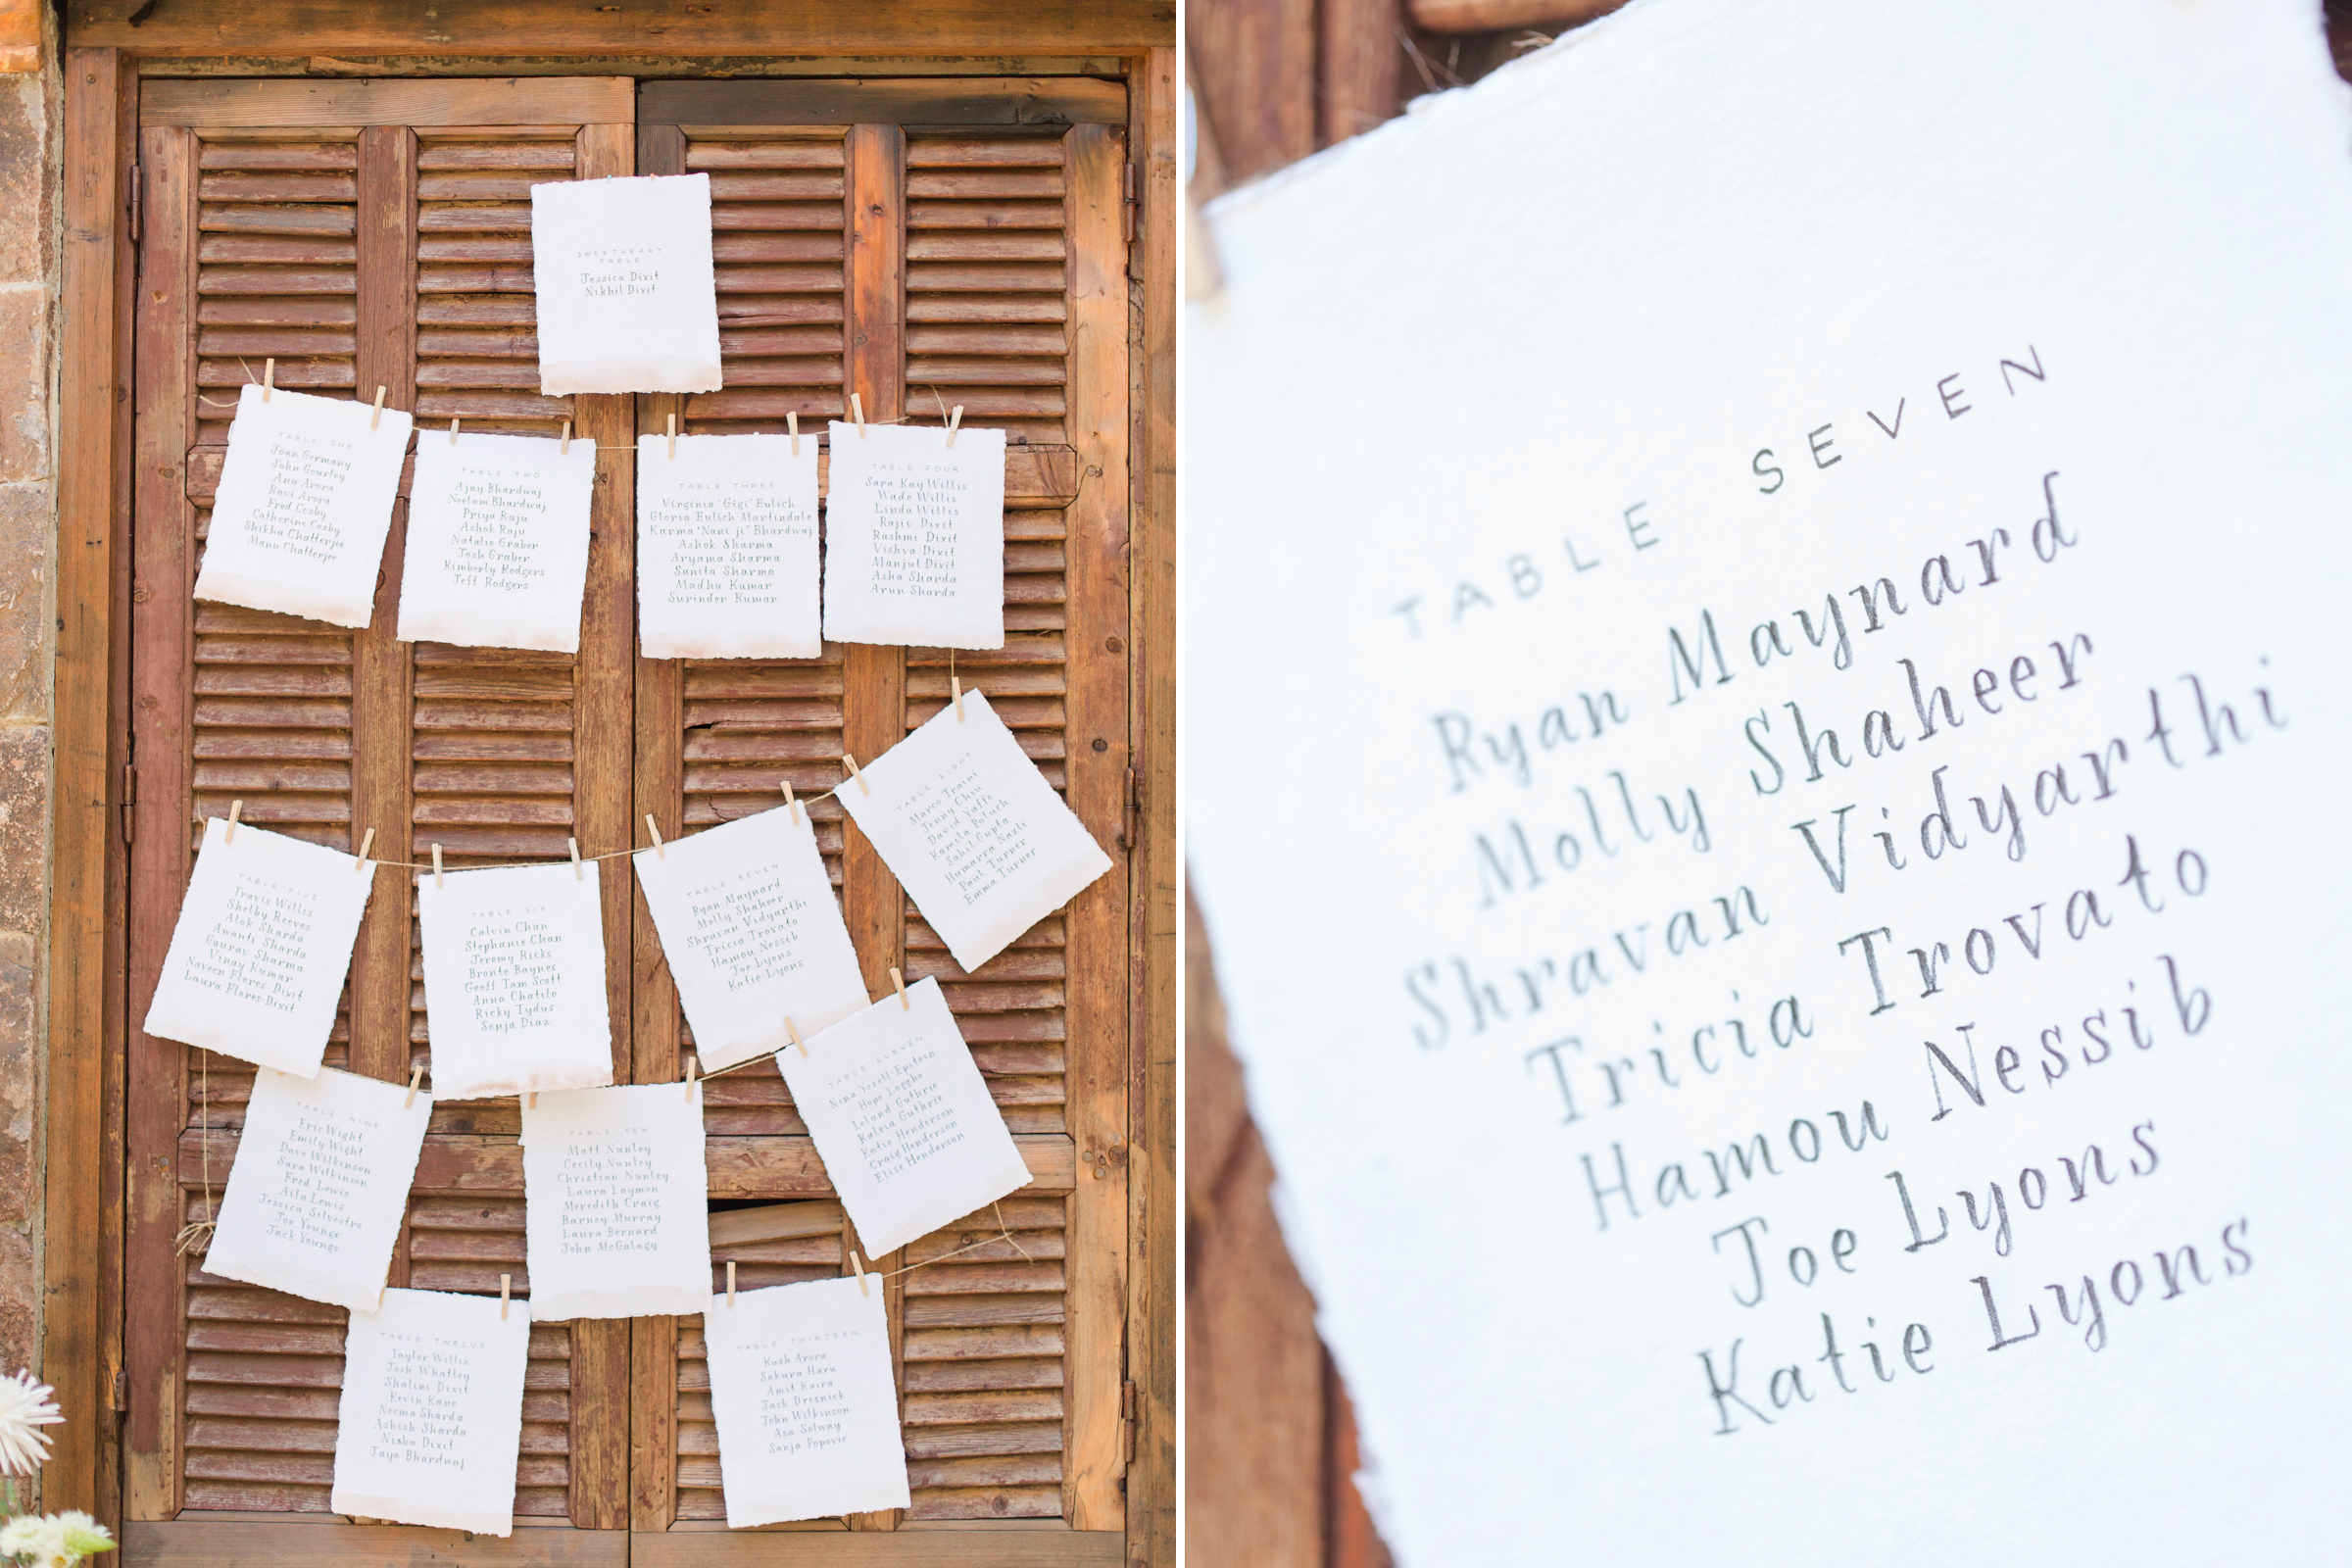 SWEETHEART
TABLE
Jessica Dixit
Nikhil Dixit
TABLE ONE
Joan Germany
John Gourley
Anu Arora
Ravi Arora
Fred Cozby
Catherine Cozby
Shikha Chatterjee
Manu Chatterjee
TABLE TWO
Ajay Bhardwaj
Neelam Bhardwaj
Priya Raju
Ashok Raju
Natalie Graber
Josh Graber
Kimberly Rodgers
Jeff Rodgers
TABLE THREE
Virginia "Gigi" Eulich
Gloria Eulich-Martindale
Karma "Nani ji" Bhardwaj
Ashok Sharma
Aryama Sharma
Sunita Sharma
Madhu Kumar
Surinder Kumar
TABLE FOUR
Sara Kay Willis
Wade Willis
Linda Willis
Rajiv Dixit
Rashmi Dixit
Vishva Dixit
Manjul Dixit
Asha Sharda
Arun Sharda
TABLE FIVE
Travis Willis
Shelby Reeves
Alok Sharda
Awanti Sharda
Gaurav Sharma
Vinay Kumar
Naveen Flores-Dixit
Laura Flores-Dixit
TABLE SIX
Calvin Chan
Stephanie Chan
Jeremy Ricks
Bronte Baynes
Geoff Tam Scott
Anna Chatilo
Ricky Tydus
Sonja Diaz
TABLE SEVEN
Ryan Maynard
Molly Shaheer
Shravan Vidyarthi
Tricia Trovato
Hamou Nessib
Joe Lyons
Katie Lyons
TABLE EIGHT
Marco Traini
Jenny Chiu
David Yaffe
Kamila Paluch
Sahil Gupta
Humarra Nazli
Paul Turner
Emma Turner
TABLE NINE
Eric Wight
Emily Wight
Dave Wilkinson
Sara Wilkinson
Fred Lewis
Aila Lewis
Jessica Silvestro
Joe Youngs
Jack Youngs
TABLE TEN
Matt Nunley
Cecily Nunley
Christian Nunley
Laura Laymon
Meredith Craig
Barney Murray
Laura Bernard
John McGalagy
TABLE ELEVEN
Nina Yozell-Epstein
Hope Logghe
Leland Guthrie
Kaleia Guthrie
Katie Henderson
Craig Henderson
Elise Henderson
TABLE TWELVE
Taylor Willis
Josh Whatley
Shalini Dixit
Kevin Kane
Neema Sharda
Ashish Sharda
Nisha Dixit
Jaya Bhardwaj
TABLE THIRTEEN
Kush Arora
Sakura Haru
Amit Kaira
Jack Dresnick
John Wilkinson
Asa Solway
Sanja Popovic
TABLE SEVEN
Ryan Maynard
Molly Shaheer
Shravan Vidyarthi
Tricia Trovato
Hamou Nessib
Joe Lyons
Katie Lyons